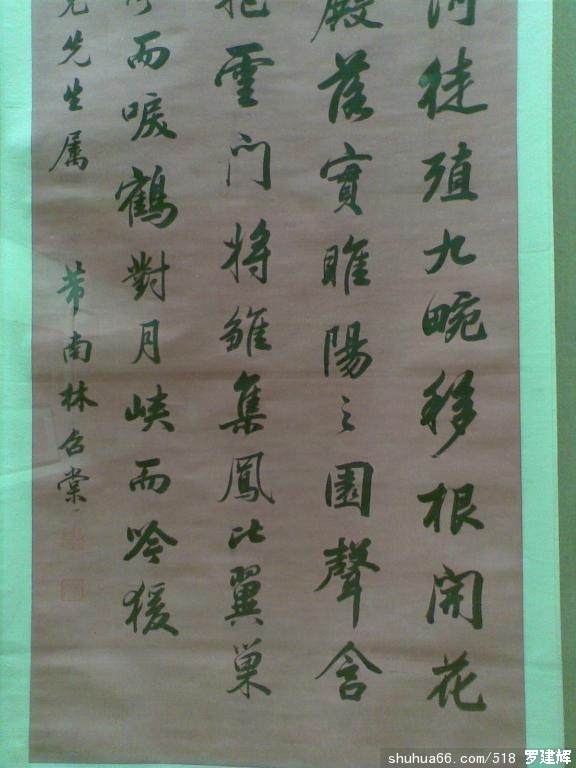 河徙殖九畹移根開花
殿落實睢陽之園聲含
抱雲門将雛集鳳比翼巢
而唳鶴對月峡而吟猨
兄先生属
芾南林召棠
shuhua66.com/518 罗建辉